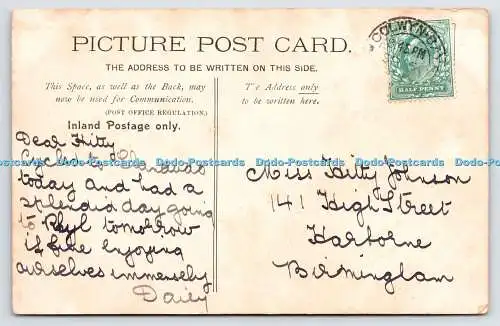 PICTURE POST CARD.
THE ADDRESS TO BE WRITTEN ON THIS SIDE.
This Space, as well as the Back, may
now be used for Communication.
(POST OFFICE REGULATION.)
Inland Postage only.
T e Address only
to be written here.
COLWYN
PM
HALF PENNY
Dear Hitty
Cycled to
today and had a
splendid day going
to Rhyl tomorrow
if fine enjoying
ourselves immensely
Daisy
Miss Hitty Johnson
141 High Street
Harborne
Birmingham
Dodo-Postcards Dodo-Postcards Dodo-Postcards Dodo-Postcards Dodo-Postcards